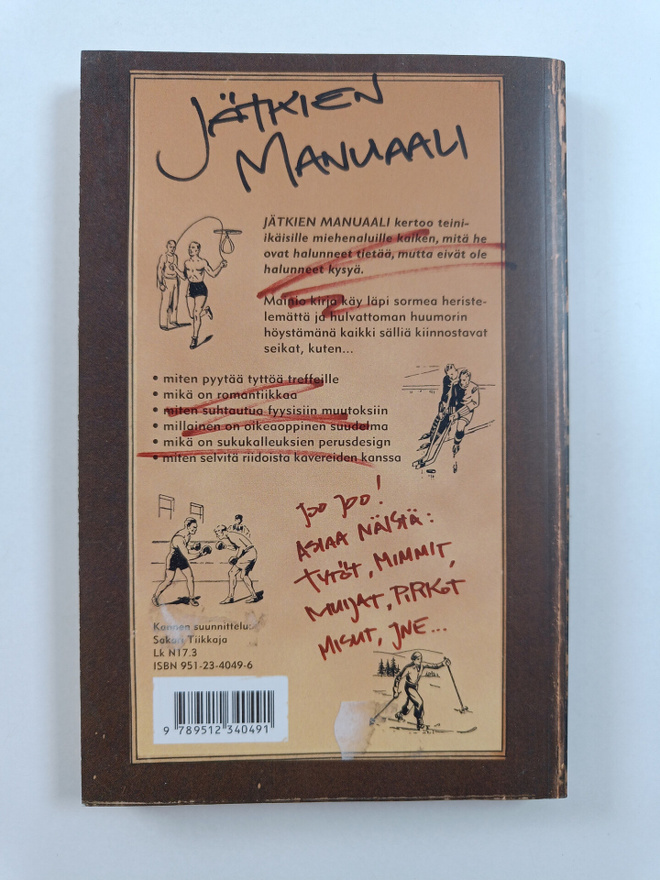 JÄTKIEN
MANUAALI
JÄTKIEN MANUAALI kertoo teini-
ikäisille miehenaluille kaiken, mitä he
ovat halunneet tietää, mutta eivät ole
halunneet kysyä.
Mainio kirja käy läpi sormea heriste-
lemättä ja hulvattoman huumorin
höystämänä kaikki sälliä kiinnostavat
seikat, kuten...
• miten pyytää tyttöä treffeille
• mikä on romantiikkaa
• miten suhtautua fyysisiin muutoksiin
• millainen on oikeaoppinen suudelma
• mikä on sukukalleuksien perusdesign
• miten selvitä riidoista kavereiden kanssa
JOO JOO!
ASIAA NÄISTÄ:
TYTÖT, MIMMIT,
MUIJAT, PIRKOT
MISUT, JNE...
Kannen suunnittelu:
Sakari Tiikkaja
Lk N17.3
ISBN 951-23-4049-6
9 789512 340491